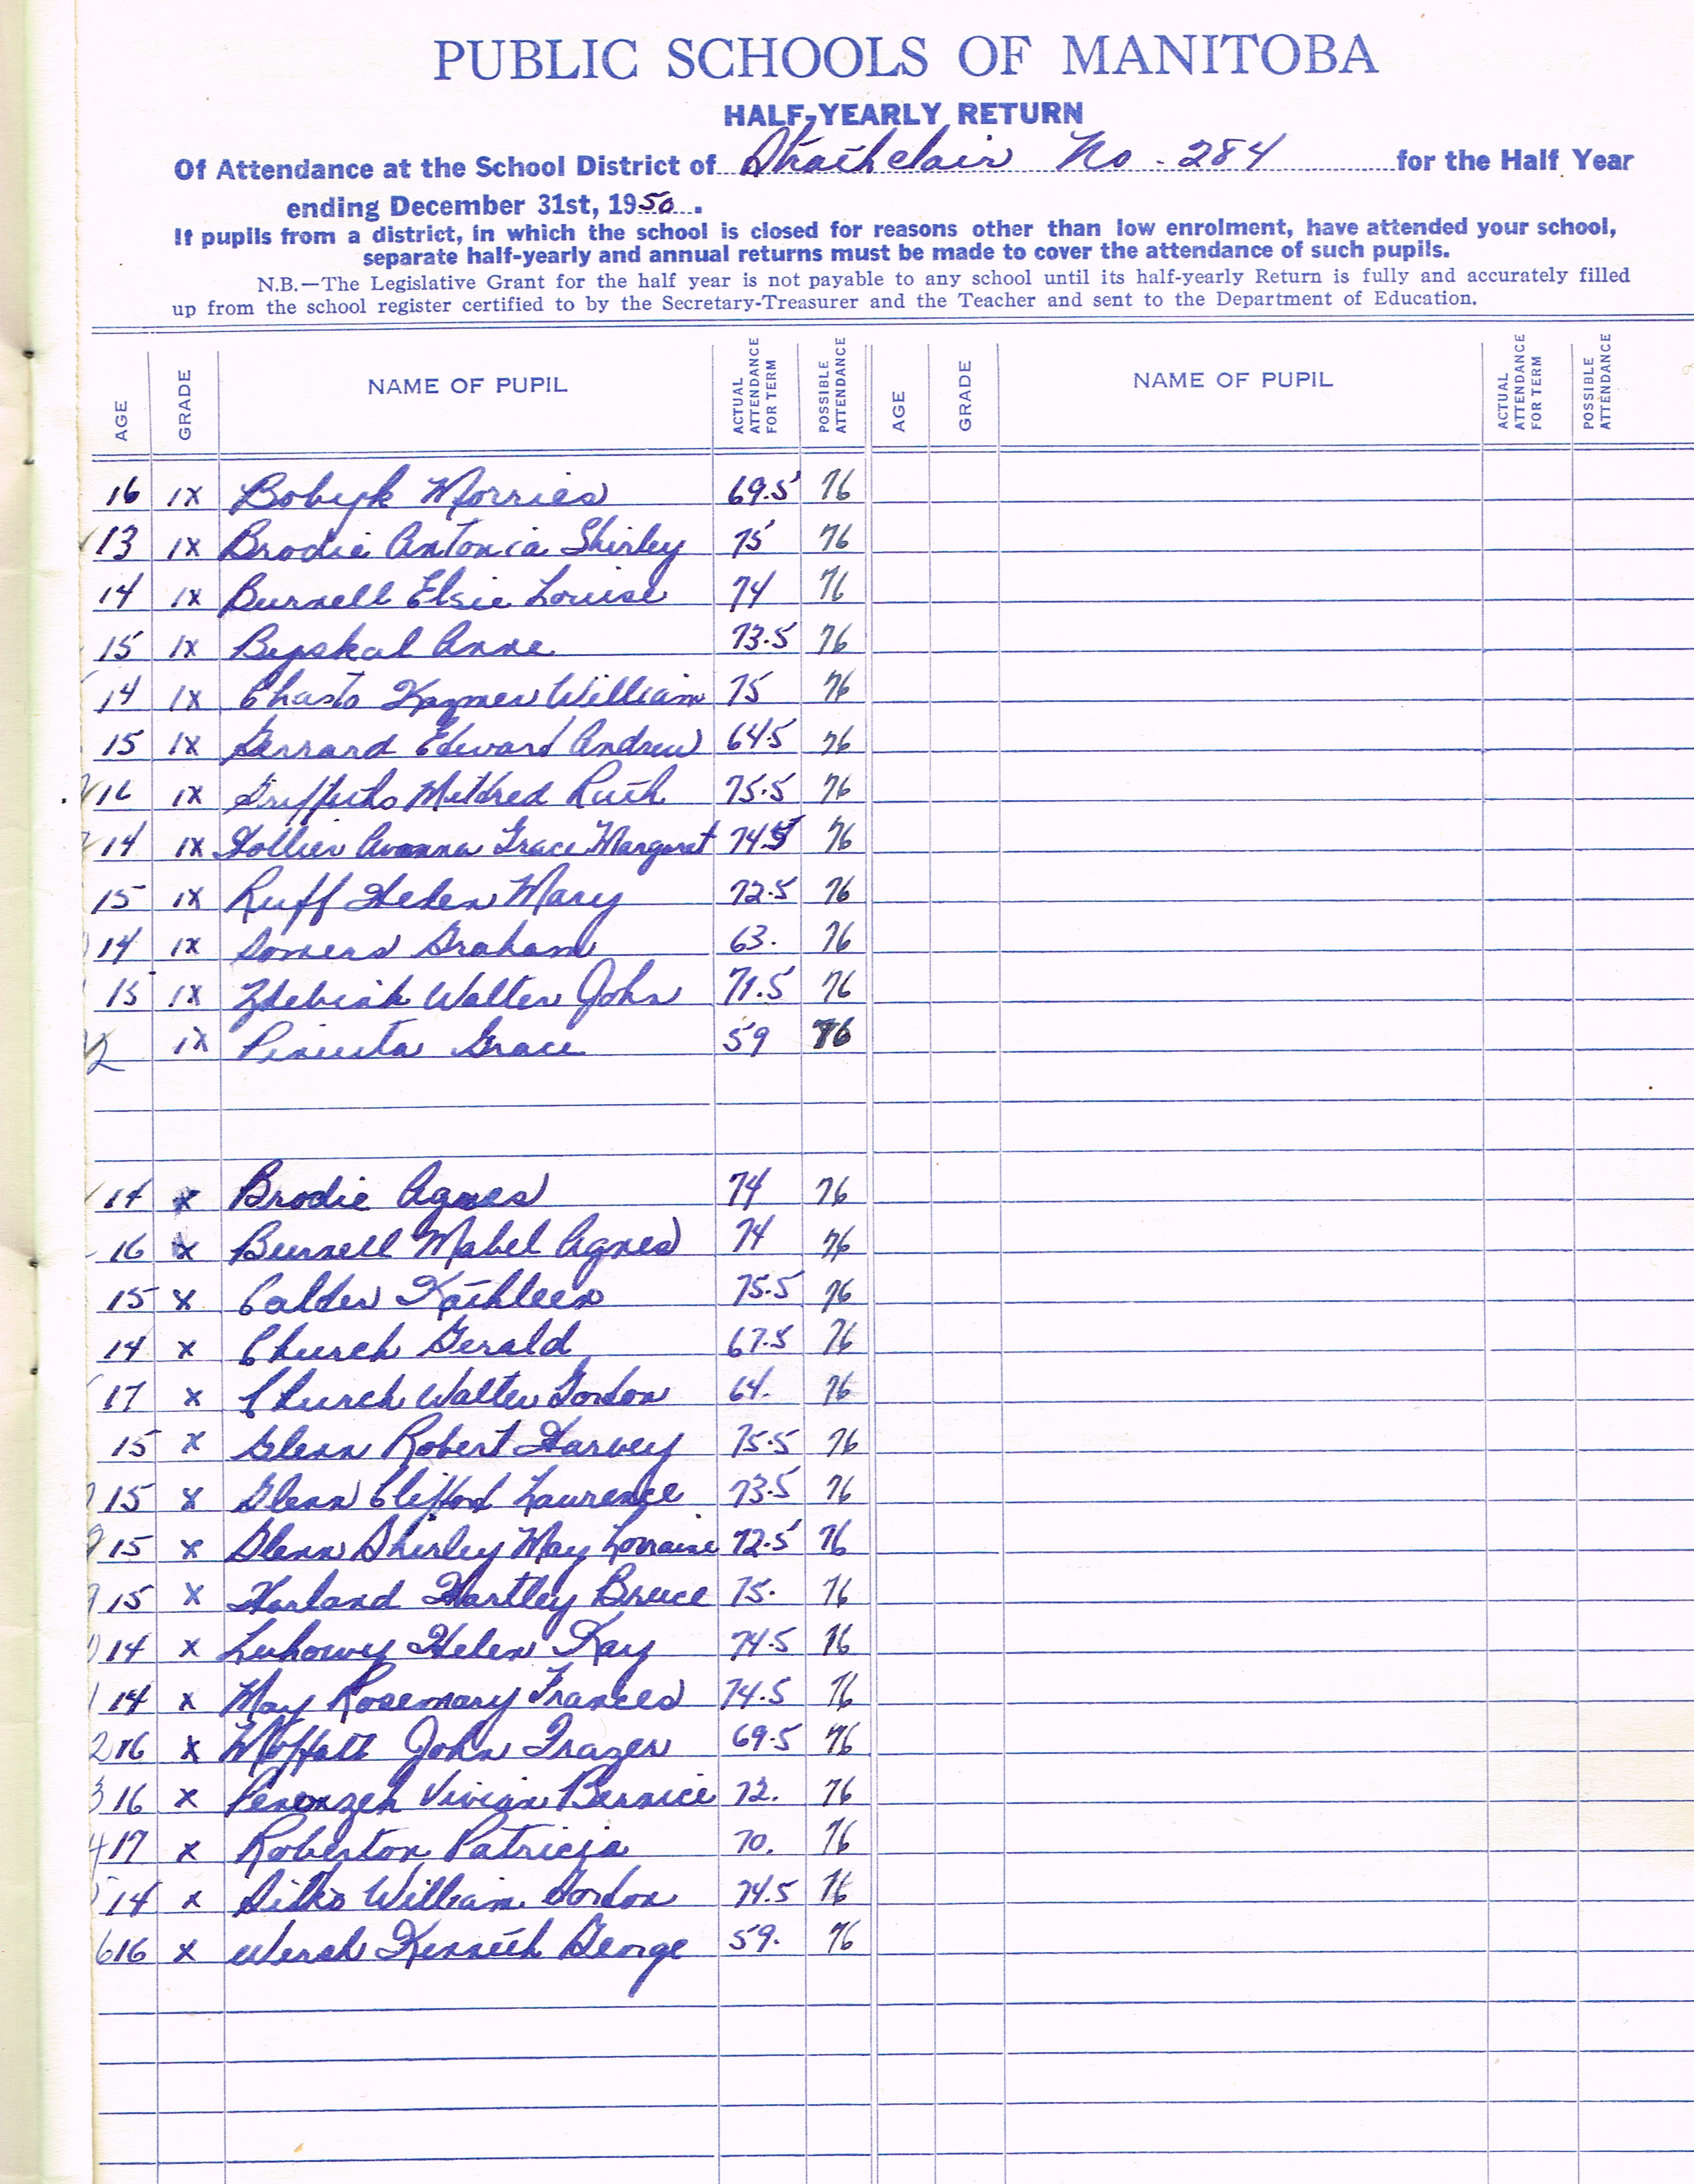 PUBLIC SCHOOLS OF MANITOBA
HALF-YEARLY RETURN
Of Attendance at the School District of Strathclair No. 284 for the Half Year
ending December 31st, 1950.
If pupils from a district, in which the school is closed for reasons other than low enrolment, have attended your school,
separate half-yearly and annual returns must be made to cover the attendance of such pupils.
N.B.—The Legislative Grant for the half year is not payable to any school until its half-yearly Return is fully and accurately filled
up from the school register certified to by the Secretary-Treasurer and the Teacher and sent to the Department of Education.
AGE GRADE NAME OF PUPIL ACTUAL ATTENDANCE FOR TERM POSSIBLE ATTENDANCE AGE GRADE NAME OF PUPIL ACTUAL ATTENDANCE FOR TERM POSSIBLE ATTENDANCE
16 IX Bobyk Morries 69.5 76
13 IX Brodie Antonia Shirley 75 76
14 IX Burnell Elsie Louise 74 76
15 IX Byskal Anne 73.5 76
14 IX Chasto William 75 76
15 IX Gerrard Edward Andrew 64.5 76
16 IX Griffiths Mildred Ruth 75.5 76
14 IX Hollier Avonna Grace Margaret 74.5 76
15 IX Ruff Helen Mary 72.5 76
14 IX Somers Graham 63. 76
15 IX Zdebiak Walter John 71.5 76
IX Pinuta Grace 59 76
14 X Brodie Agnes 74 76
16 X Burnell Mabel Agnes 74 76
15 X Calder Kathleen 75.5 76
14 X Church Gerald 67.5 76
17 X Church Walter Gordon 64. 76
15 X Glenn Robert Harvey 75.5 76
15 X Glenn Clifford Laurence 73.5 76
15 X Glenn Shirley May Lorraine 72.5 76
15 X Harland Hartley Bruce 75. 76
14 X Luhowy Helen Kay 74.5 76
14 X May Rosemary Frances 74.5 76
16 X Moffatt John Frazer 69.5 76
16 X Vivian Bernice 72. 76
17 X Roberton Patricia 70. 76
14 X Sitko William Gordon 74.5 76
16 X Wersh Kenneth George 59. 76